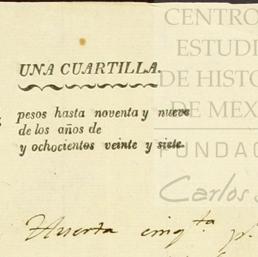 CENTRO
ESTUDI
DE HISTO
DE MEX
FUNDAC
Carlos S
UNA CUARTILLA.
pesos hasta noventa y nueve
de los años de
y ochocientos veinte y siete.
Huerta cinq.ta p.